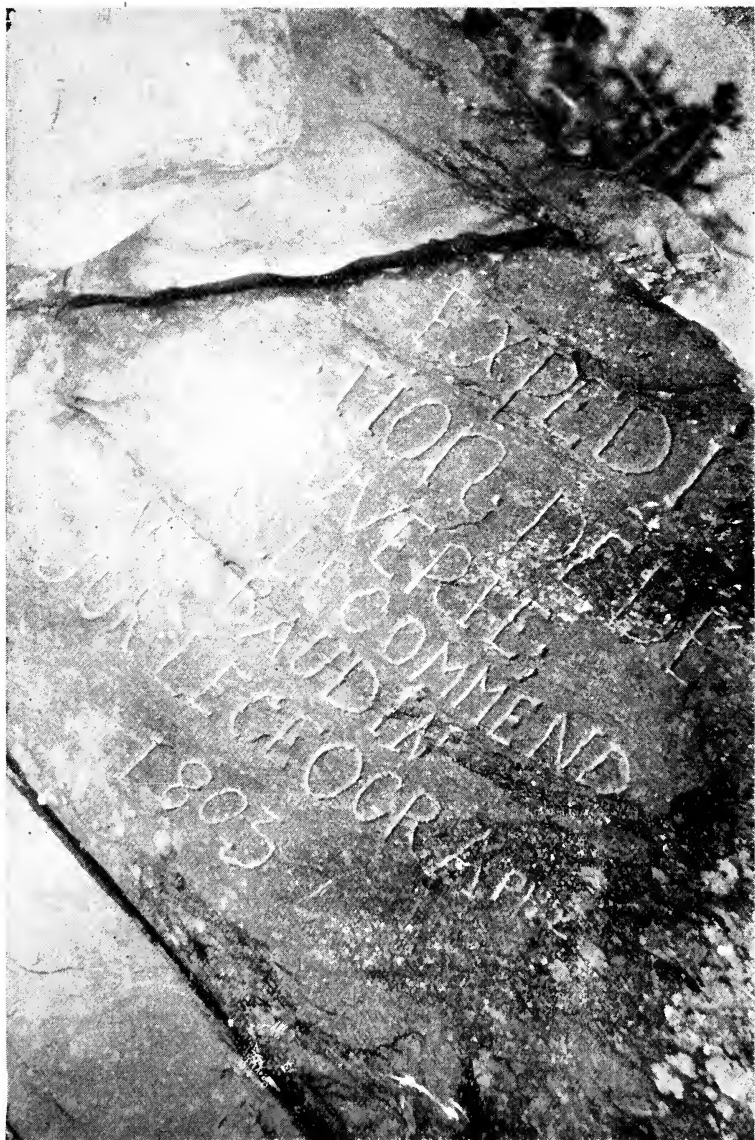 EXPEDI
TION. DE DE
VERTE.
LE COMMEND
BAUDIN
SUR LE GEOGRAPHE
1803